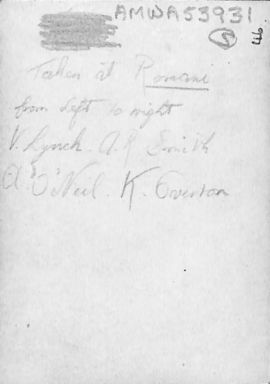 AMWA53931
5
46
Taken at Romani
from left to right
V. Lynch. A. R Smith
A O'Neil. K. Overton